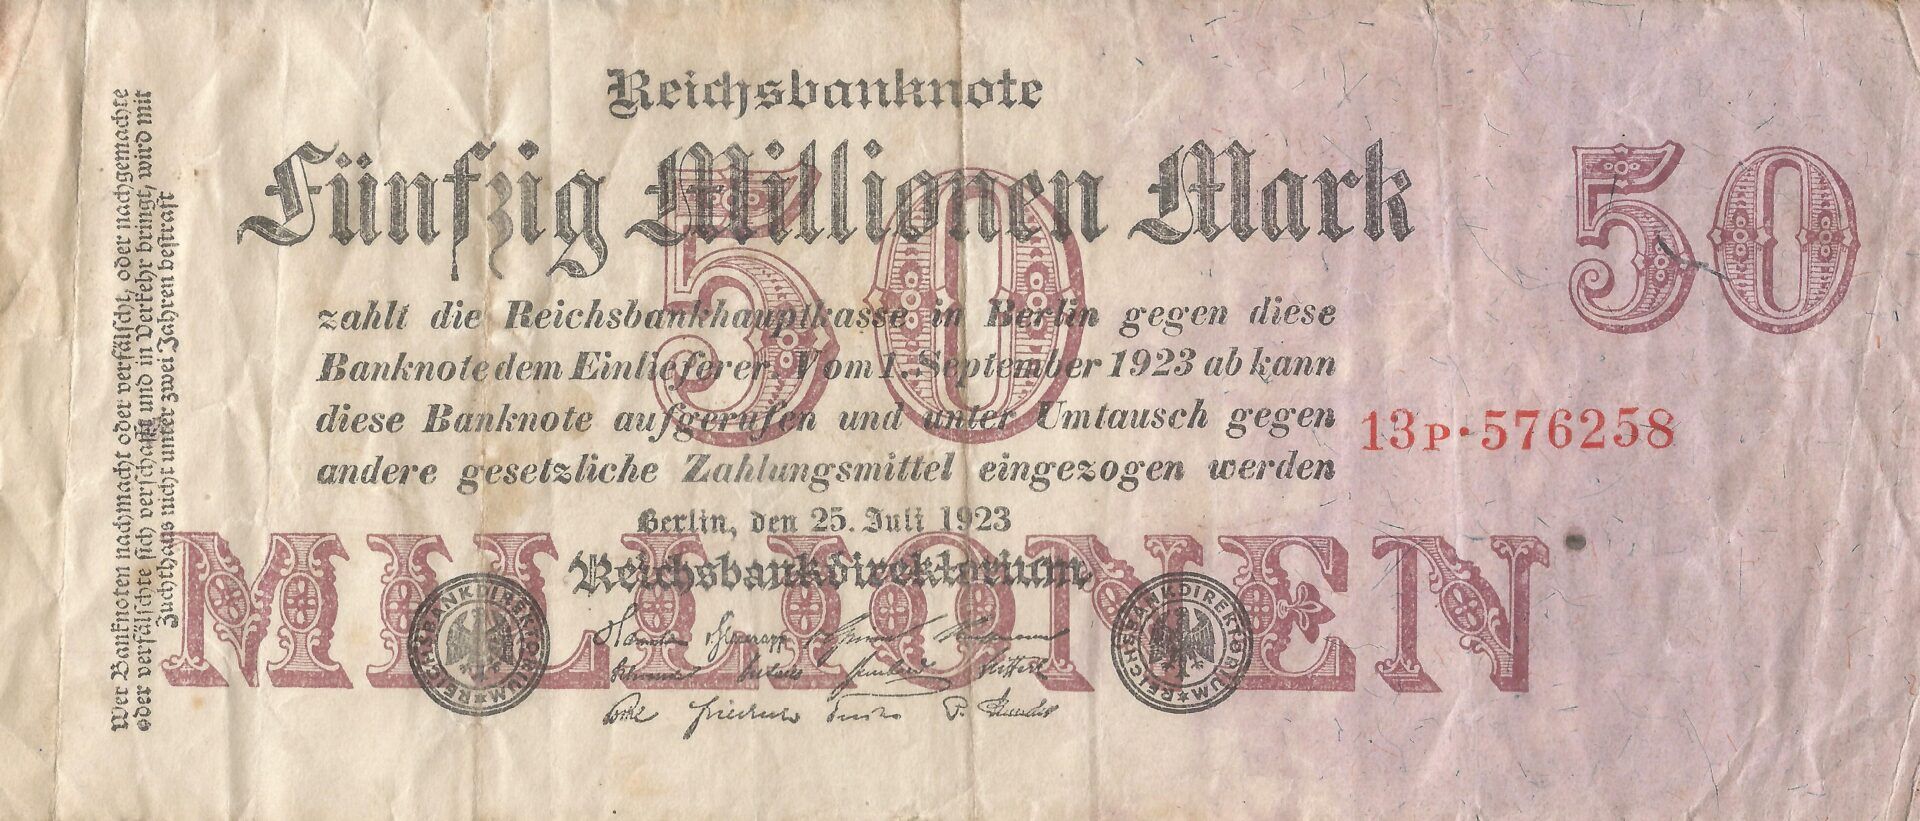 Reichsbanknote
Fünfzig Millionen Mark
50
50
zahlt die Reichsbankhauptkasse in Berlin gegen diese
Banknote dem Einlieferer. Vom 1. September 1923 ab kann
diese Banknote aufgerufen und unter Umtausch gegen
andere gesetzliche Zahlungsmittel eingezogen werden
13P·576258
Berlin, den 25. Juli 1923
Reichsbankdirektorium
MILLIONEN
REICHSBANKDIREKTORIUM
REICHSBANKDIREKTORIUM
Wer Banknoten nachmacht oder verfälscht, oder nachgemachte
oder verfälschte sich verschafft und in Verkehr bringt, wird mit
Zuchthaus nicht unter zwei Jahren bestraft